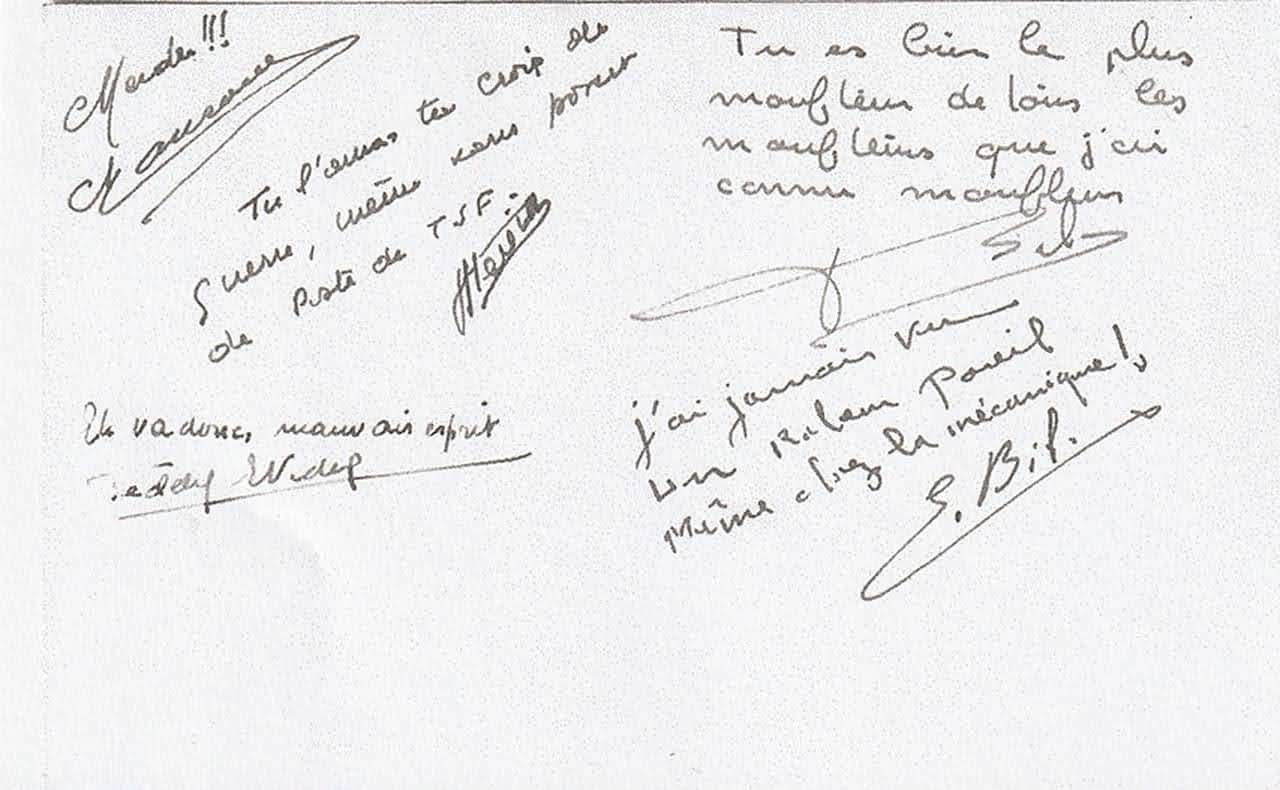 Tu l'auras ta Croix de
Guerre, même sans poser
de Poste de TSF.
Eh va donc, mauvais esprit
Tu es bien le plus
moufleur de tous les
moufleurs que j'ai
connu moufleurs
J'ai jamais vu
un pareil
même chez la mécanique!